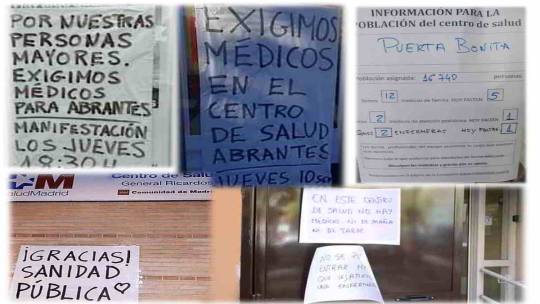 POR NUESTRAS
PERSONAS
MAYORES.
EXIGIMOS
MÉDICOS
PARA ABRANTES
MANIFESTACIÓN
LOS JUEVES
18:30H
EXIGIMOS
MÉDICOS
EN EL
CENTRO
DE SALUD
ABRANTES
JUEVES 10:30
INFORMACIÓN PARA LA
POBLACIÓN del centro de salud
PUERTA BONITA
Población asignada: 16740 personas
12 médicos de familia HOY FALTAN 5
2 médicos de atención pediátrica HOY FALTAN 1
2 ENFERMERAS HOY FALTAN 1
SaludMadrid
Centro de Salud
General Ricardos
Comunidad de Madrid
¡GRACIAS!
SANIDAD
PÚBLICA
EN ESTE CENTRO
DE SALUD NO HAY
MÉDICO NI DE MAÑANA
NI DE TARDE
NO SE
ENTRAR
QUE
UNA ENFERMERA